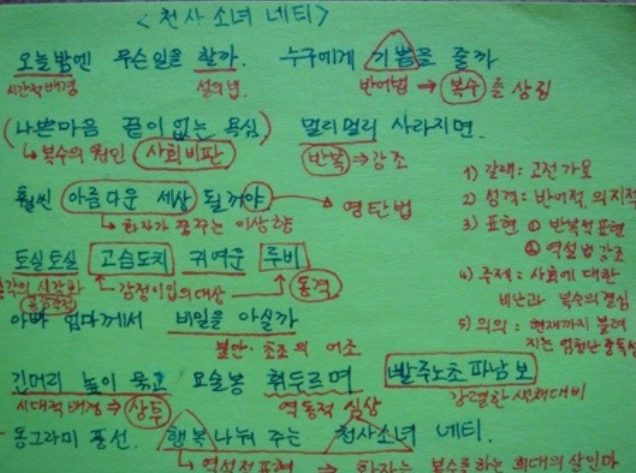 <천사소녀 네티>
오늘밤엔 무슨일을 할까. 누구에게 기쁨을 줄까
시간적배경 설의법 반어법 → 복수를 상징
(나쁜마음 끝이 없는 욕심) 멀리멀리 사라지면.
↳ 복수의 원인 사회비판 반복 → 강조
훨씬 아름다운 세상 될꺼야 → 영탄법
↳ 화자가 꿈꾸는 이상향
토실토실 고슴도치 귀여운 루비
감정이입의 대상 동격
아빠 엄마께서 비밀을 아실까
불안·초조의 어조
긴머리 높이 묶고 요술봉 휘두르며 빨주노초파남보
시대적배경 ⇒ 상투 역동적 심상 강렬한 색채대비
동그라미 풍선. 행복 나눠 주는 천사소녀 네티.
↳ 역설적표현 → 화자는 복수를 하는 희대의 살인마
1) 갈래: 고전가요
2) 성격: 반어적, 의지적
3) 표현 ① 반복적표현
② 역설법 강조
4) 주제: 사회에 대한
비난과 복수의 결심
5) 의의: 현재까지 불려
지는 엄청난 중독성